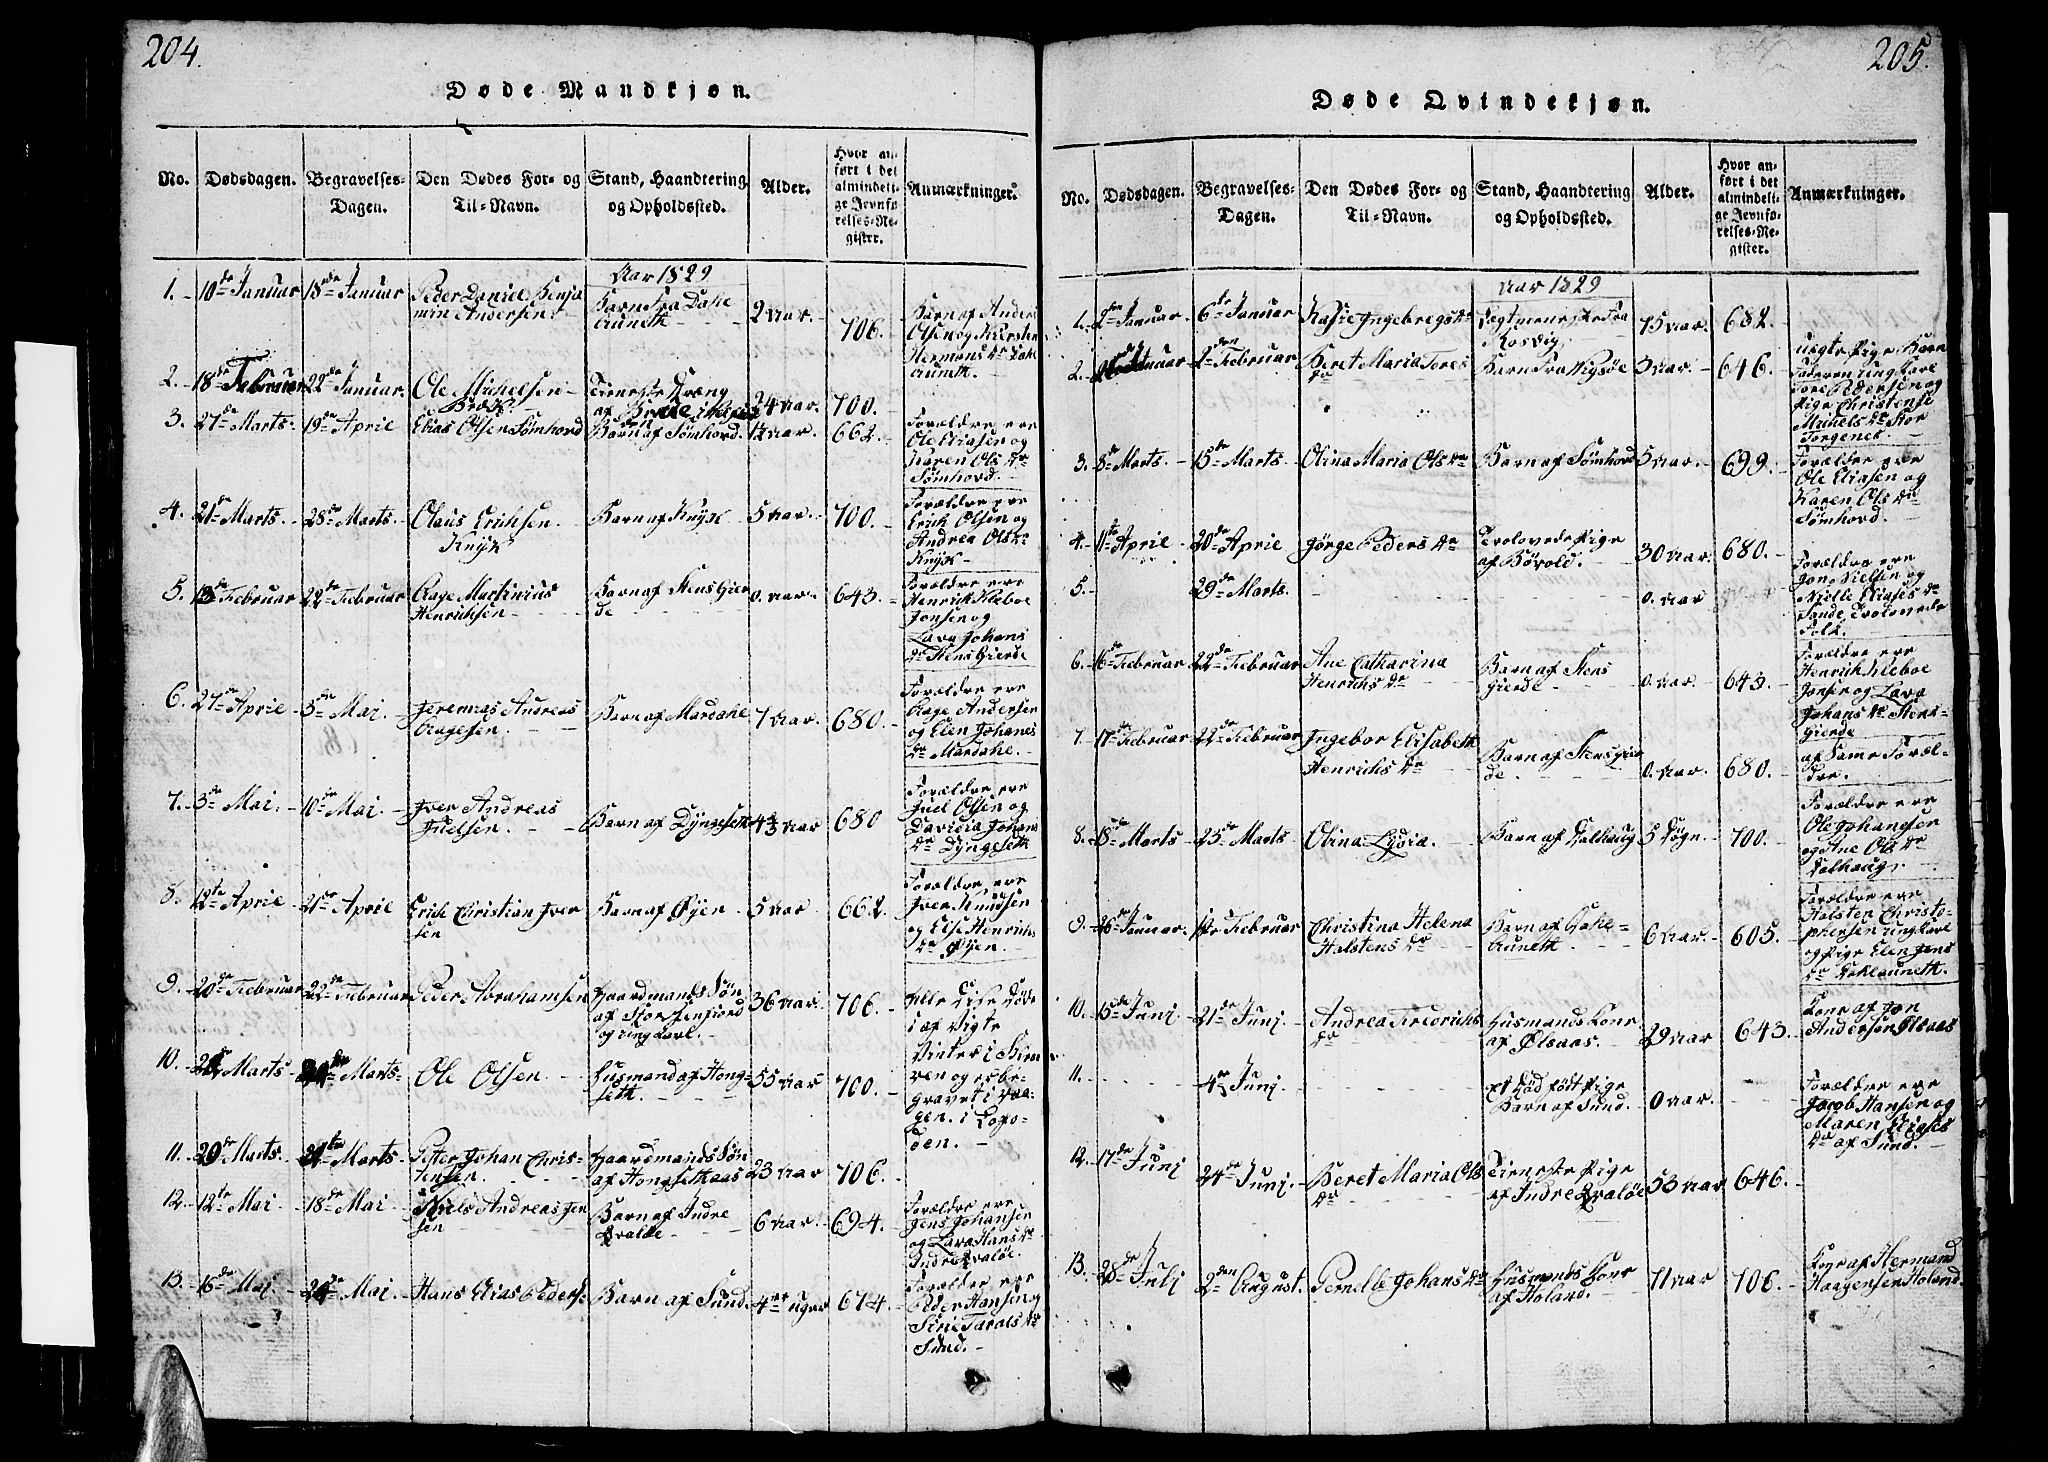 204.
Døde Mandkjøn.
No. Dødsdagen. Begravelses-Dagen. Den Dødes For- og Til-Navn. Stand, Haandtering og Opholdssted. Alder. Hvor anført i det almindelige Jevnførelses-Register. Anmærkninger.
Aar 1829
1. 10de Januar 18de Januar Peder Daniel Benja
min Andersen. Barn fra Dahl
auneth 2 Aar. 706. Barn af Anders
Olsen og Kiersten
Hermans dr Dahl
auneth.
2. 18de Februar 22de Januar. Ole Michelsen
Tieneste Dreng
af 24 Aar. 700.
3. 27de Marts 19de April Elias Olsen Sømhovd Barn af Sømhovd. 12 Aar. 662. Forældre ere
Ole Eliasen og
Karen Ols dr
Sømhovd.
4. 21de Marts. 28de Marts. Olaus Erichsen
Knyk Barn af Knyk 5 Aar. 700. Forældre ere
Erich Olsen og
Andrea Ols dr
Knyk
5. 18de Februar 22de Februar Aage Martinius
Henrichsen Barn af Stensgier
de 0. Aar. 643. Forældre ere
Henrik Kleboe
Jonsen og
Lava Johans
dr Stensgierde
6. 27de April 5de Mai. Jeremias Andreas
Aagesen. Barn af Mardahl 7 Aar. 680. Forældre ere
Aage Andersen
og Elen Johanes
dr Mardahl.
7. 3de Mai. 10de Mai Iver Andreas
Juelsen. Barn af Dyngeseth 4 Aar 680 Forældre ere
Juel Olsen og
Davidia Johans
dr Dyngeseth
8. 12te April 21de April Erich Christian Iver
sen Barn af Øyen 5 Aar 662. Forældre ere
Iver Knudsen
og Else Henrichs
dr Øyen.
9. 20de Februar 22de Februar Peder Abrahamsen Gaardmands Søn
af Storstenfiord
og ungkarl. 36 Aar. 706. Alle disse døde
i af Vigte
Vinter i
ven og er be-
gravet i Vaa-
gen. i Lofo-
den.
10. Marts Marts. Ole Olsen. Husmand af Hong-
seth. 55 Aar 700.
11. 29de Marts. 21te Marts Petter Johan Chris-
tensen. Gaardmands Søn
af Hongsethaas 23 Aar 706.
12. 12te Mai 18de Mai Niels Andreas Jen
sen Barn af Indre
Qvaløe 6 Aar. 694. Forældre ere
Jens Johansen
og Lava Hans dr
Indre Qvaløe.
13. 16de Mai. 24de Mai. Hans Elias Peders. Barn af Sund. 4re uger 674. Forældre ere
Peder Hansen og
Siri Tarals dr
Sund.
205.
Døde Qvindekjøn.
No. Dødsdagen. Begravelses-Dagen. Den Dødes For- og Til-Navn. Stand, Haandtering og Opholdssted. Alder. Hvor anført i det almindelige Jevnførelses-Register. Anmærkninger.
Aar 1829
1. 2den Januar. 6te Januar Ingebregs dr Lægtmeneske fra
Rosvig. 75 Aar. 682.
2. Januar 1ste Februar Beret Maria Tores
dr Barn fra Rysøe 3 Aar. 646. uægte Pige Barn
Faderen ungkarl
Tore Pedersen og
Pige Christense
Michels dr Stor
Torgenes.
3. 8de Marts. 15de Marts. Olina Maria Ols dr Barn af Sømhovd 5 Aar. 699. Forældre ere
Ole Eliasen og
Karen Ols dr
Sømhovd.
4. 11te April 20de April Jørge Peders dr Trolovede Pige
af Bøvold. 30 Aar. 680.
5. 29de Marts. 0. Aar Forældre ere
Jon Nielsen og
Nielle Eliases dr
Sande, Trolovede
Folk.
6. 16de Februar 22de Februar Ane Catharina
Henrichs dr Barn af Stens
gierde 0. Aar. 643. Forældre ere
Henrik Kleboe
Jonsen og Lava
Johans dr Stens-
gierde
7. 17de Februar 22de Februar Ingebor Elisabeth
Henrichs dr Barn af Stensgier
de. 0. Aar. 680. af Samme Foræl-
dre.
8. 18de Marts 25de Marts Olina Lydia. Barn af Dalhaug 5 Døgn. 700. Forældre ere
Ole Johansen
og Ane Ols dr
Dalhaug.
9. 26de Januar. 1ste Februar Christina Helena
Halstens dr Barn af Dahl-
auneth. 6 Aar. 605. Forældre ere
Halsten Christo-
phersen ungkarl
og Pige Elen Jens
dr Dahlauneth.
10. 15de Juni 21de Juni. Andrea Fredrichs
dr Husmands Kone
af Ølsaas. 29 Aar 643. Kone af Jon
Andersen Ølsaas
11. 4de Juni. et død født Pige
Barn af Sund. 0 Aar. Forældre ere
Jacob Hansen og
Maren Eliases
dr af Sund.
12. 17de Juni 24de Juni. Beret Maria Ols
dr Tieneste Pige
af Indre Qvaløe 53 Aar 646.
13. 28de Juli 2den August. Pernelle Johans dr Husmands Kone
af Holand. 71 Aar 706. Kone af Hermand
Haagensen Holand.